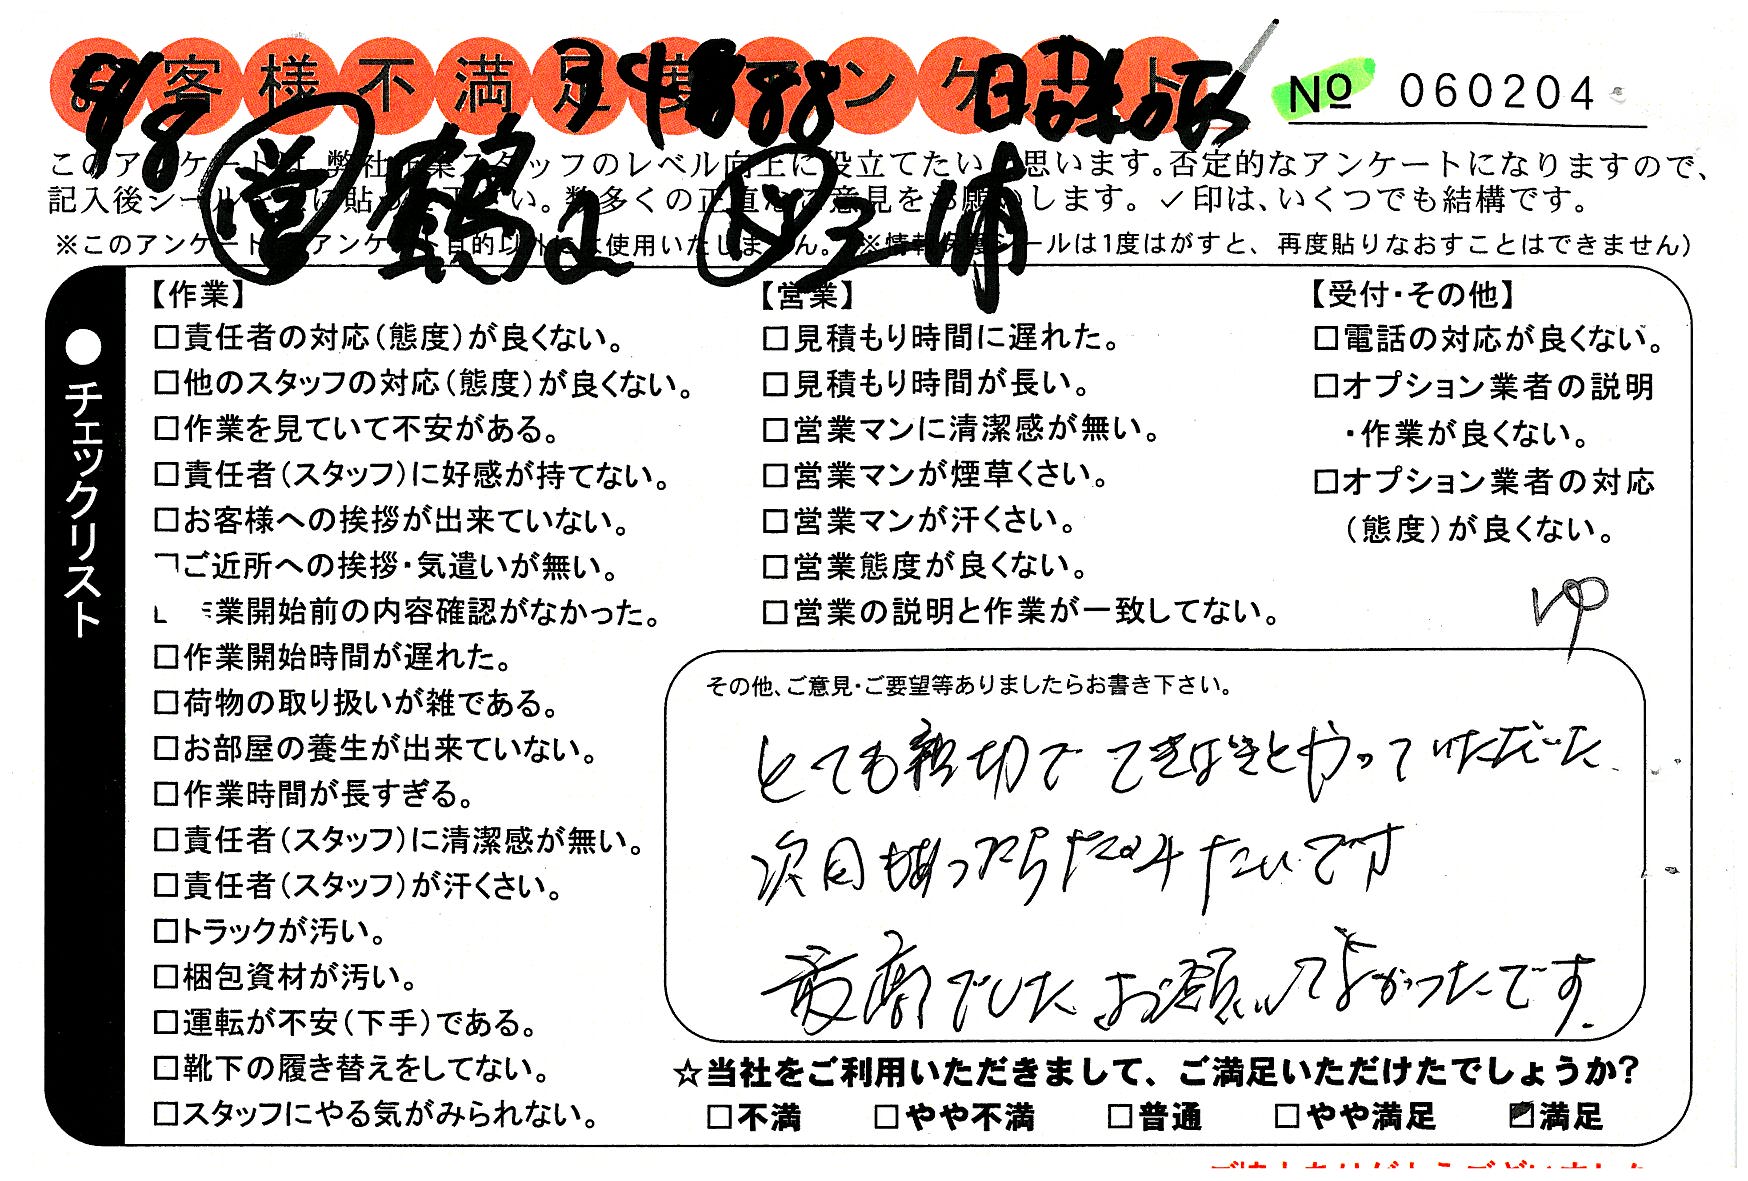 お客様不満足度アンケート
No 060204
このアンケートは、弊社作業スタッフのレベル向上に役立てたいと思います。否定的なアンケートになりますので、
記入後シールを上に貼って下さい。数多くの正直なご意見をお願いします。✓印は、いくつでも結構です。
※このアンケートは、アンケート目的以外には使用いたしません。(※情報保護シールは1度はがすと、再度貼りなおすことはできません)
●チェックリスト
【作業】
□責任者の対応(態度)が良くない。
□他のスタッフの対応(態度)が良くない。
□作業を見ていて不安がある。
□責任者(スタッフ)に好感が持てない。
□お客様への挨拶が出来ていない。
□ご近所への挨拶・気遣いが無い。
□作業開始前の内容確認がなかった。
□作業開始時間が遅れた。
□荷物の取り扱いが雑である。
□お部屋の養生が出来ていない。
□作業時間が長すぎる。
□責任者(スタッフ)に清潔感が無い。
□責任者(スタッフ)が汗くさい。
□トラックが汚い。
□梱包資材が汚い。
□運転が不安(下手)である。
□靴下の履き替えをしてない。
□スタッフにやる気がみられない。
【営業】
□見積もり時間に遅れた。
□見積もり時間が長い。
□営業マンに清潔感が無い。
□営業マンが煙草くさい。
□営業マンが汗くさい。
□営業態度が良くない。
□営業の説明と作業が一致してない。
【受付・その他】
□電話の対応が良くない。
□オプション業者の説明
・作業が良くない。
□オプション業者の対応
(態度)が良くない。
ゆ
その他、ご意見・ご要望等ありましたらお書き下さい。
とても親切で てきぱきとやっていただいた
次回もあったらたのみたいです
最高でした お願いしてよかったです.
☆当社をご利用いただきまして、ご満足いただけたでしょうか?
□不満 □やや不満 □普通 □やや満足 ☑満足